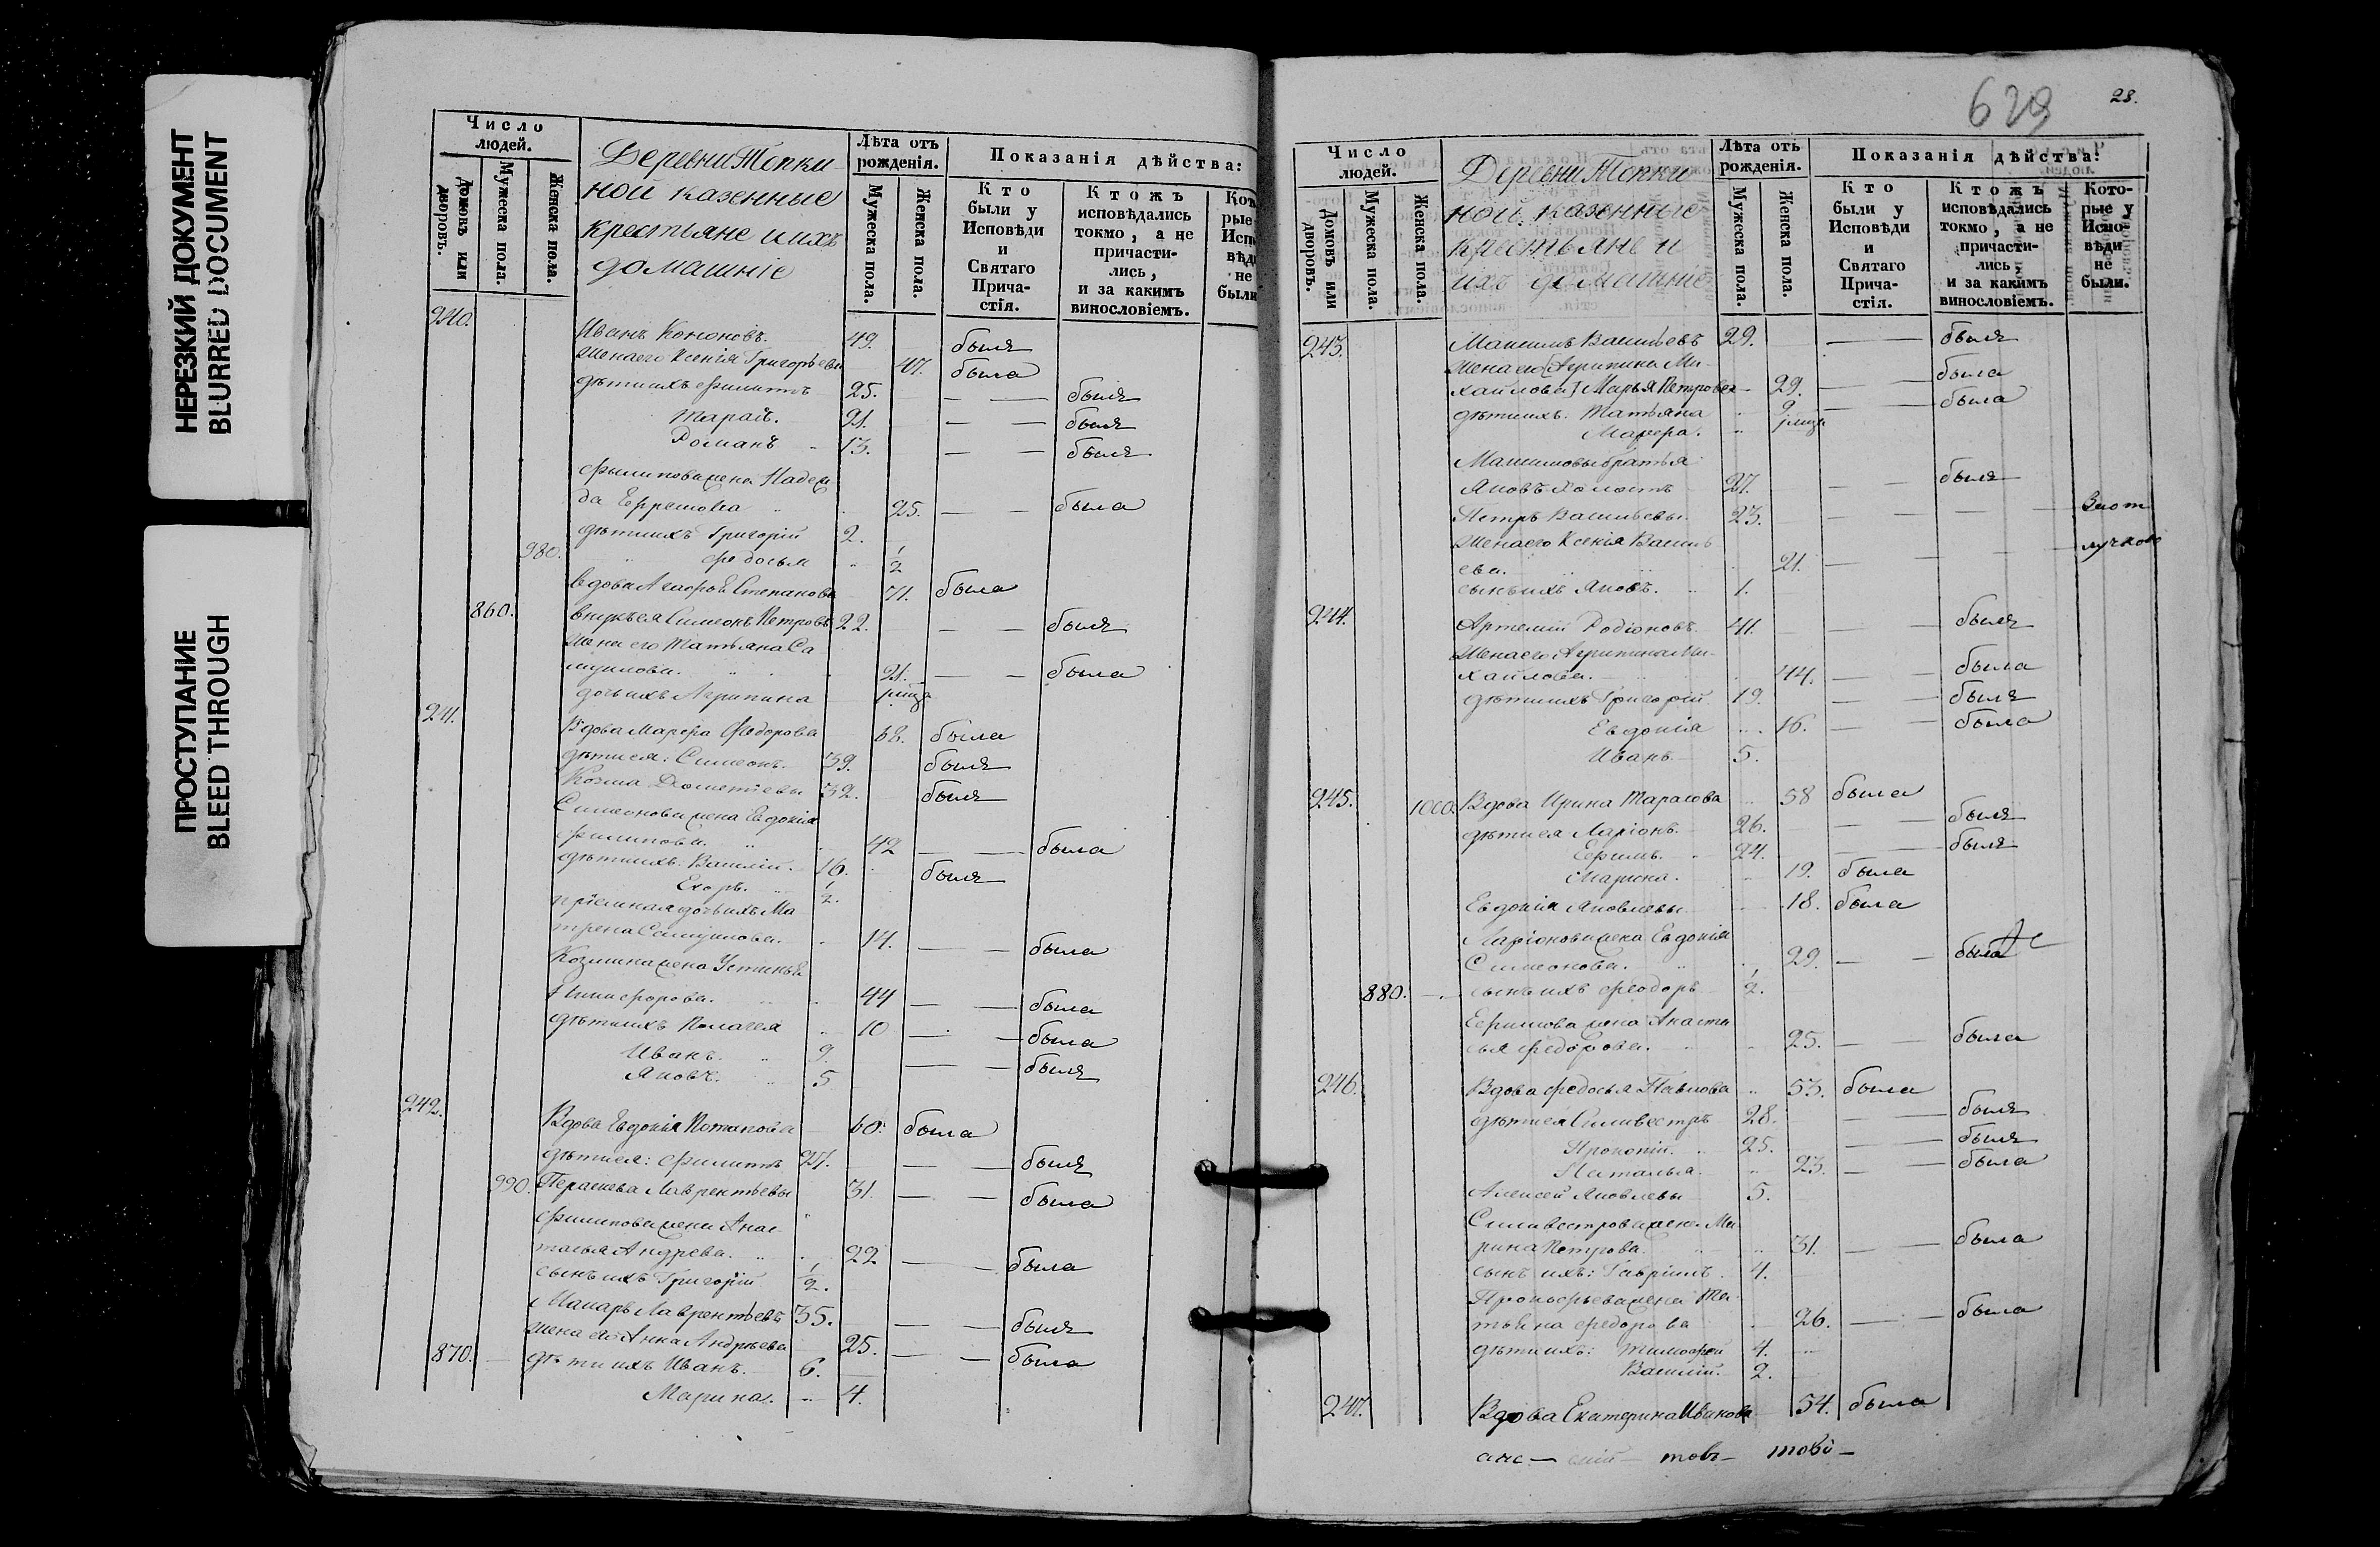 НЕРЕЗКИЙ ДОКУМЕНТ
BLURRED DOCUMENT
ПРОСТУПАНИЕ
BLEED THROUGH
Число людей.
Домовъ или дворовъ.
Мужеска пола.
Женска пола.
Деревни Топки-
ной казенные
крестьяне и ихъ
домашніе
Лѣта отъ рожденія.
Мужеска пола.
Женска пола.
Показанія дѣйства:
Кто были у Исповѣди и Святаго Причастія.
Ктожъ исповѣдались токмо, а не причастились, и за какимъ винословіемъ.
240.
Иванъ Кононовъ. 49. былъ
жена его Ксенія Григорьева 47. была
дѣти ихъ Филиппъ 25. — — былъ
Тарасъ. 21. — — былъ
Романъ 13. — — былъ
Филипова жена Надеж
да Ефремова 25. — — была
дѣти ихъ Григорій 2.
980. Федосья 1/2
вдова Агафья Степанова 71. была
860. внукъ ея Симеонъ Петровъ 22. — — былъ
жена его Татьяна Са
муилова. 21. — — была
дочь ихъ Агрипина
241.
Вдова Марфа Федорова 68. была
дѣти ея: Симеонъ. 39. былъ
Козма Дометіевы 32. былъ
Симеонова жена Евдокія
Филипова 42 — — была
дѣти ихъ Василій. 16. былъ
Егоръ. 1/2.
пріемная дочь ихъ Ма
трена Самуилова. 14. — — была
Козмина жена Устинья
Никифорова. 44 — — была
дѣти ихъ Пелагея 10 — — была
Иванъ. 9. — — былъ
Яковъ. 5
242.
Вдова Евдокія Потапова 60. была
дѣти ея: Филиппъ 27. — — былъ
990. Параскева Лаврентьевы 31. — — была
Филипова жена Анас-
тасья Андрева. 22 — — была
сынъ ихъ Григорій 1/2.
Макаръ Лаврентьевъ 35. — — былъ
жена его Анна Андреева 25. — — была
870. — дѣти ихъ Иванъ. 6.
Марина. 4.
629
28.
Число людей.
Домовъ или дворовъ.
Мужеска пола.
Женска пола.
Деревни Топки
ной казенные
крестьяне и
ихъ домашніе
Лѣта отъ рожденія.
Мужеска пола.
Женска пола.
Показанія дѣйства:
Кто были у Исповѣди и Святаго Причастія.
Ктожъ исповѣдались токмо, а не причастились, и за какимъ винословіемъ.
Которые у Исповѣди не были.
243. Максимъ Васильевъ 29. — — былъ
жена его [Агрипина Ми-
хаилова] Марья Петрова 29. — — была
дѣти ихъ. Татьяна 9 — — была
Марфа.
Максимовы братья
Яковъ холостъ 27. — — былъ
Петръ Васильевы. 23. — — —
жена его Ксенія Василь
ева. 21. — —
сынъ ихъ Яковъ. 1.
244. Артемій Родіоновъ. 41. — — былъ
жена его Агрипина Ми-
хаилова. 44. — — была
дѣти ихъ Григорій 19. — — былъ
Евдокія 16. — — была
Иванъ 5.
245. 1000. Вдова Ирина Тарасова 58 была
дѣти ея Ларіонъ. 26. — — былъ
Ефимъ. 24. — — былъ
19. была
Евдокія Яковлевы 18. была
Ларіонова жена Евдокія
Симеонова. 29. — — была
880. — сынъ ихъ Феодоръ 1/2.
Ефимова жена Анаста
сья Федорова. 25. — — была
246. Вдова Федосья Павлова 53. была
дѣти ея Силивестръ 28. — — былъ
Прокопій. 25. — — былъ
Наталья. 23. — — была
Алексей Яковлевы 5.
Силивестрова жена Ма
рина Петрова. 31. — — была
сынъ ихъ: Гавріилъ. 4.
Прокофьева жена Та
тьяна Федорова 26. — — была
дѣти ихъ: Тимофей 4.
Василій. 2.
247. Вдова Екатерина Иванова 54. была